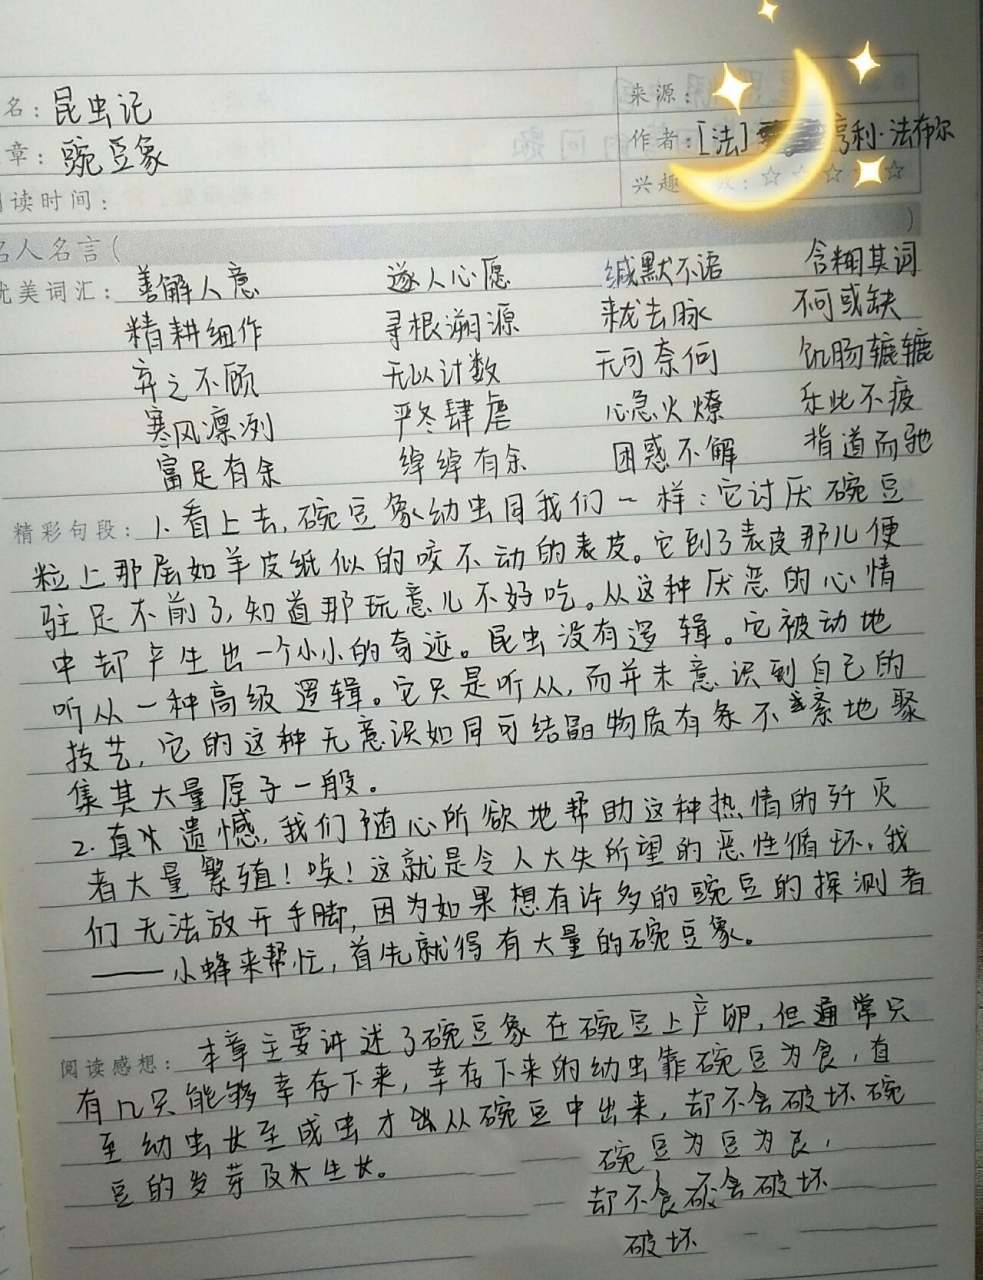 名：昆虫记
来源：
章：豌豆象
作者：[法]亨利·法布尔
阅读时间：
兴趣 数：☆☆☆☆
名人名言（ ）
优美词汇：善解人意 遂人心愿 缄默不语 含糊其词
精耕细作 寻根溯源 来龙去脉 不可或缺
弃之不顾 无以计数 无可奈何 饥肠辘辘
寒风凛冽 严冬肆虐 心急火燎 乐此不疲
富足有余 绰绰有余 困惑不解 指道而驰
精彩句段：1.看上去，碗豆象幼虫同我们一样：它讨厌碗豆
粒上那层如羊皮纸似的咬不动的表皮。它到了表皮那儿便
驻足不前了，知道那玩意儿不好吃。从这种厌恶的心情
中却产生出一个小小的奇迹。昆虫没有逻辑。它被动地
听从一种高级逻辑。它只是听从，而并未意识到自己的
技艺，它的这种无意识如同可结晶物质有条不紊地聚
集其大量原子一般。
2.真遗憾，我们随心所欲地帮助这种热情的歼灭
者大量繁殖！唉！这就是令人大失所望的恶性循环，我
们无法放开手脚，因为如果想有许多的豌豆的探测者
——小蜂来帮忙，首先就得有大量的碗豆象。
阅读感想：本章主要讲述了碗豆象在碗豆上产卵，但通常只
有几只能够幸存下来，幸存下来的幼虫靠碗豆为食，直
至幼虫长至成虫才从碗豆中出来，却不会破坏碗
豆的发芽及生长。
碗豆为豆为良，
却不食破会破坏
破坏